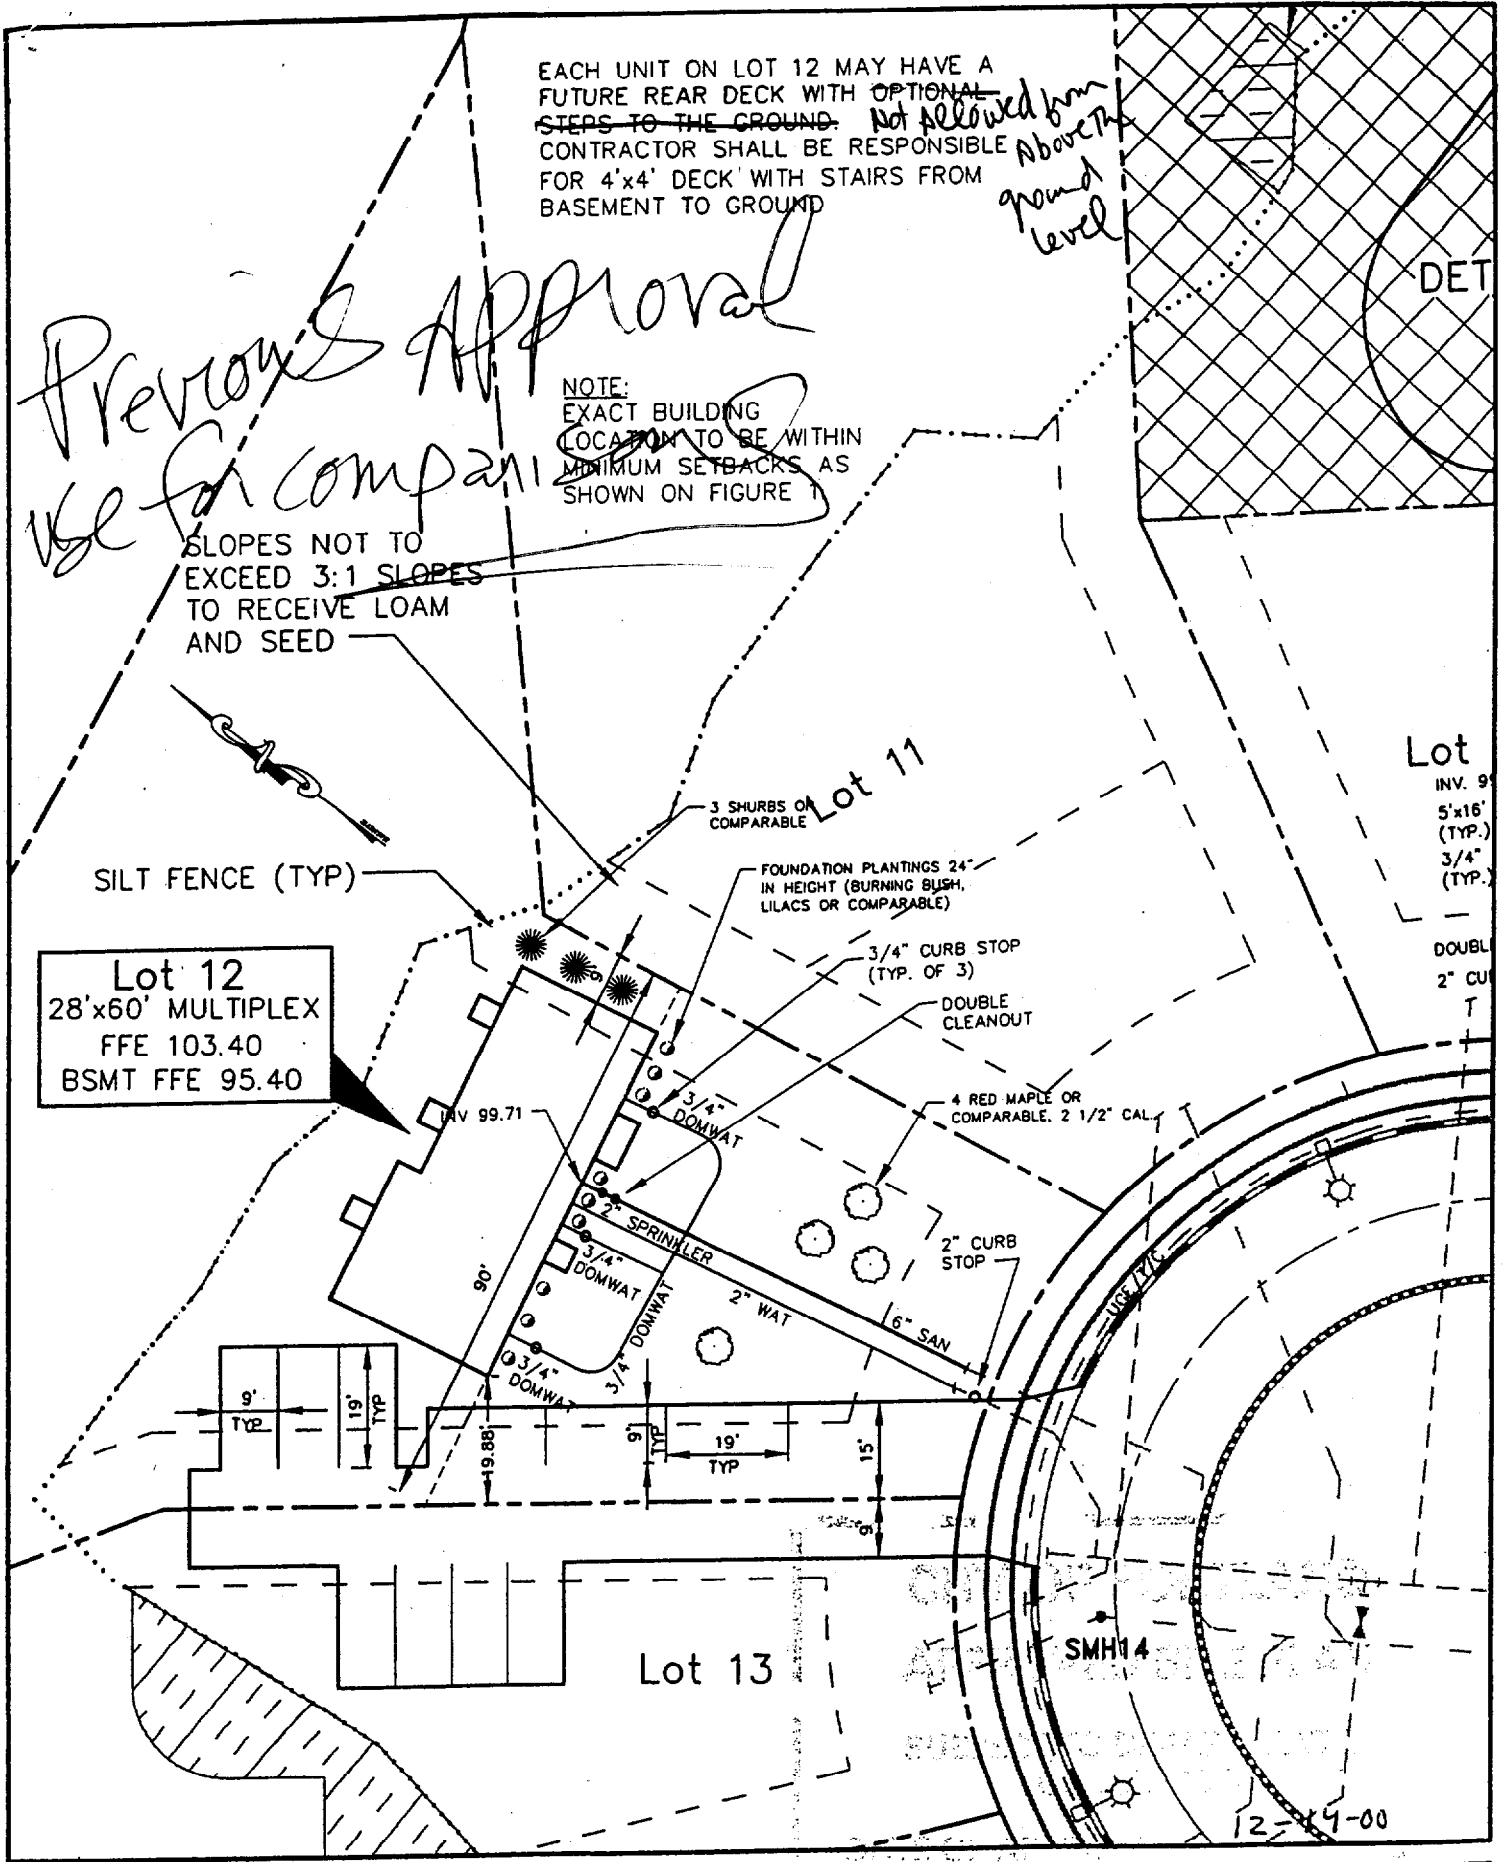 EACH UNIT ON LOT 12 MAY HAVE A
FUTURE REAR DECK WITH OPTIONAL
STEPS TO THE GROUND. Not Allowed from
Above The
ground
level
CONTRACTOR SHALL BE RESPONSIBLE
FOR 4'x4' DECK WITH STAIRS FROM
BASEMENT TO GROUND
DET
Previous Approval
use for comparisons
NOTE:
EXACT BUILDING
LOCATION TO BE WITHIN
MINIMUM SETBACKS AS
SHOWN ON FIGURE 1
SLOPES NOT TO
EXCEED 3:1 SLOPES
TO RECEIVE LOAM
AND SEED
Lot 11
Lot
INV. 99
5'x16'
(TYP.)
3/4"
(TYP.)
DOUBL
2" CU
3 SHURBS OR
COMPARABLE
SILT FENCE (TYP)
FOUNDATION PLANTINGS 24"
IN HEIGHT (BURNING BUSH,
LILACS OR COMPARABLE)
3/4" CURB STOP
(TYP. OF 3)
DOUBLE
CLEANOUT
Lot 12
28'x60' MULTIPLEX
FFE 103.40
BSMT FFE 95.40
INV 99.71
3/4"
DOMWAT
4 RED MAPLE OR
COMPARABLE. 2 1/2" CAL.
2" SPRINKLER
3/4"
DOMWAT
2" CURB
STOP
UGE/T/C
90'
2" WAT
6" SAN
3/4" DOMWAT
3/4"
DOMWAT
9'
TYP
19'
TYP
19.88'
9'
TYP
19'
TYP
15'
9'
Lot 13
SMH14
12-14-00